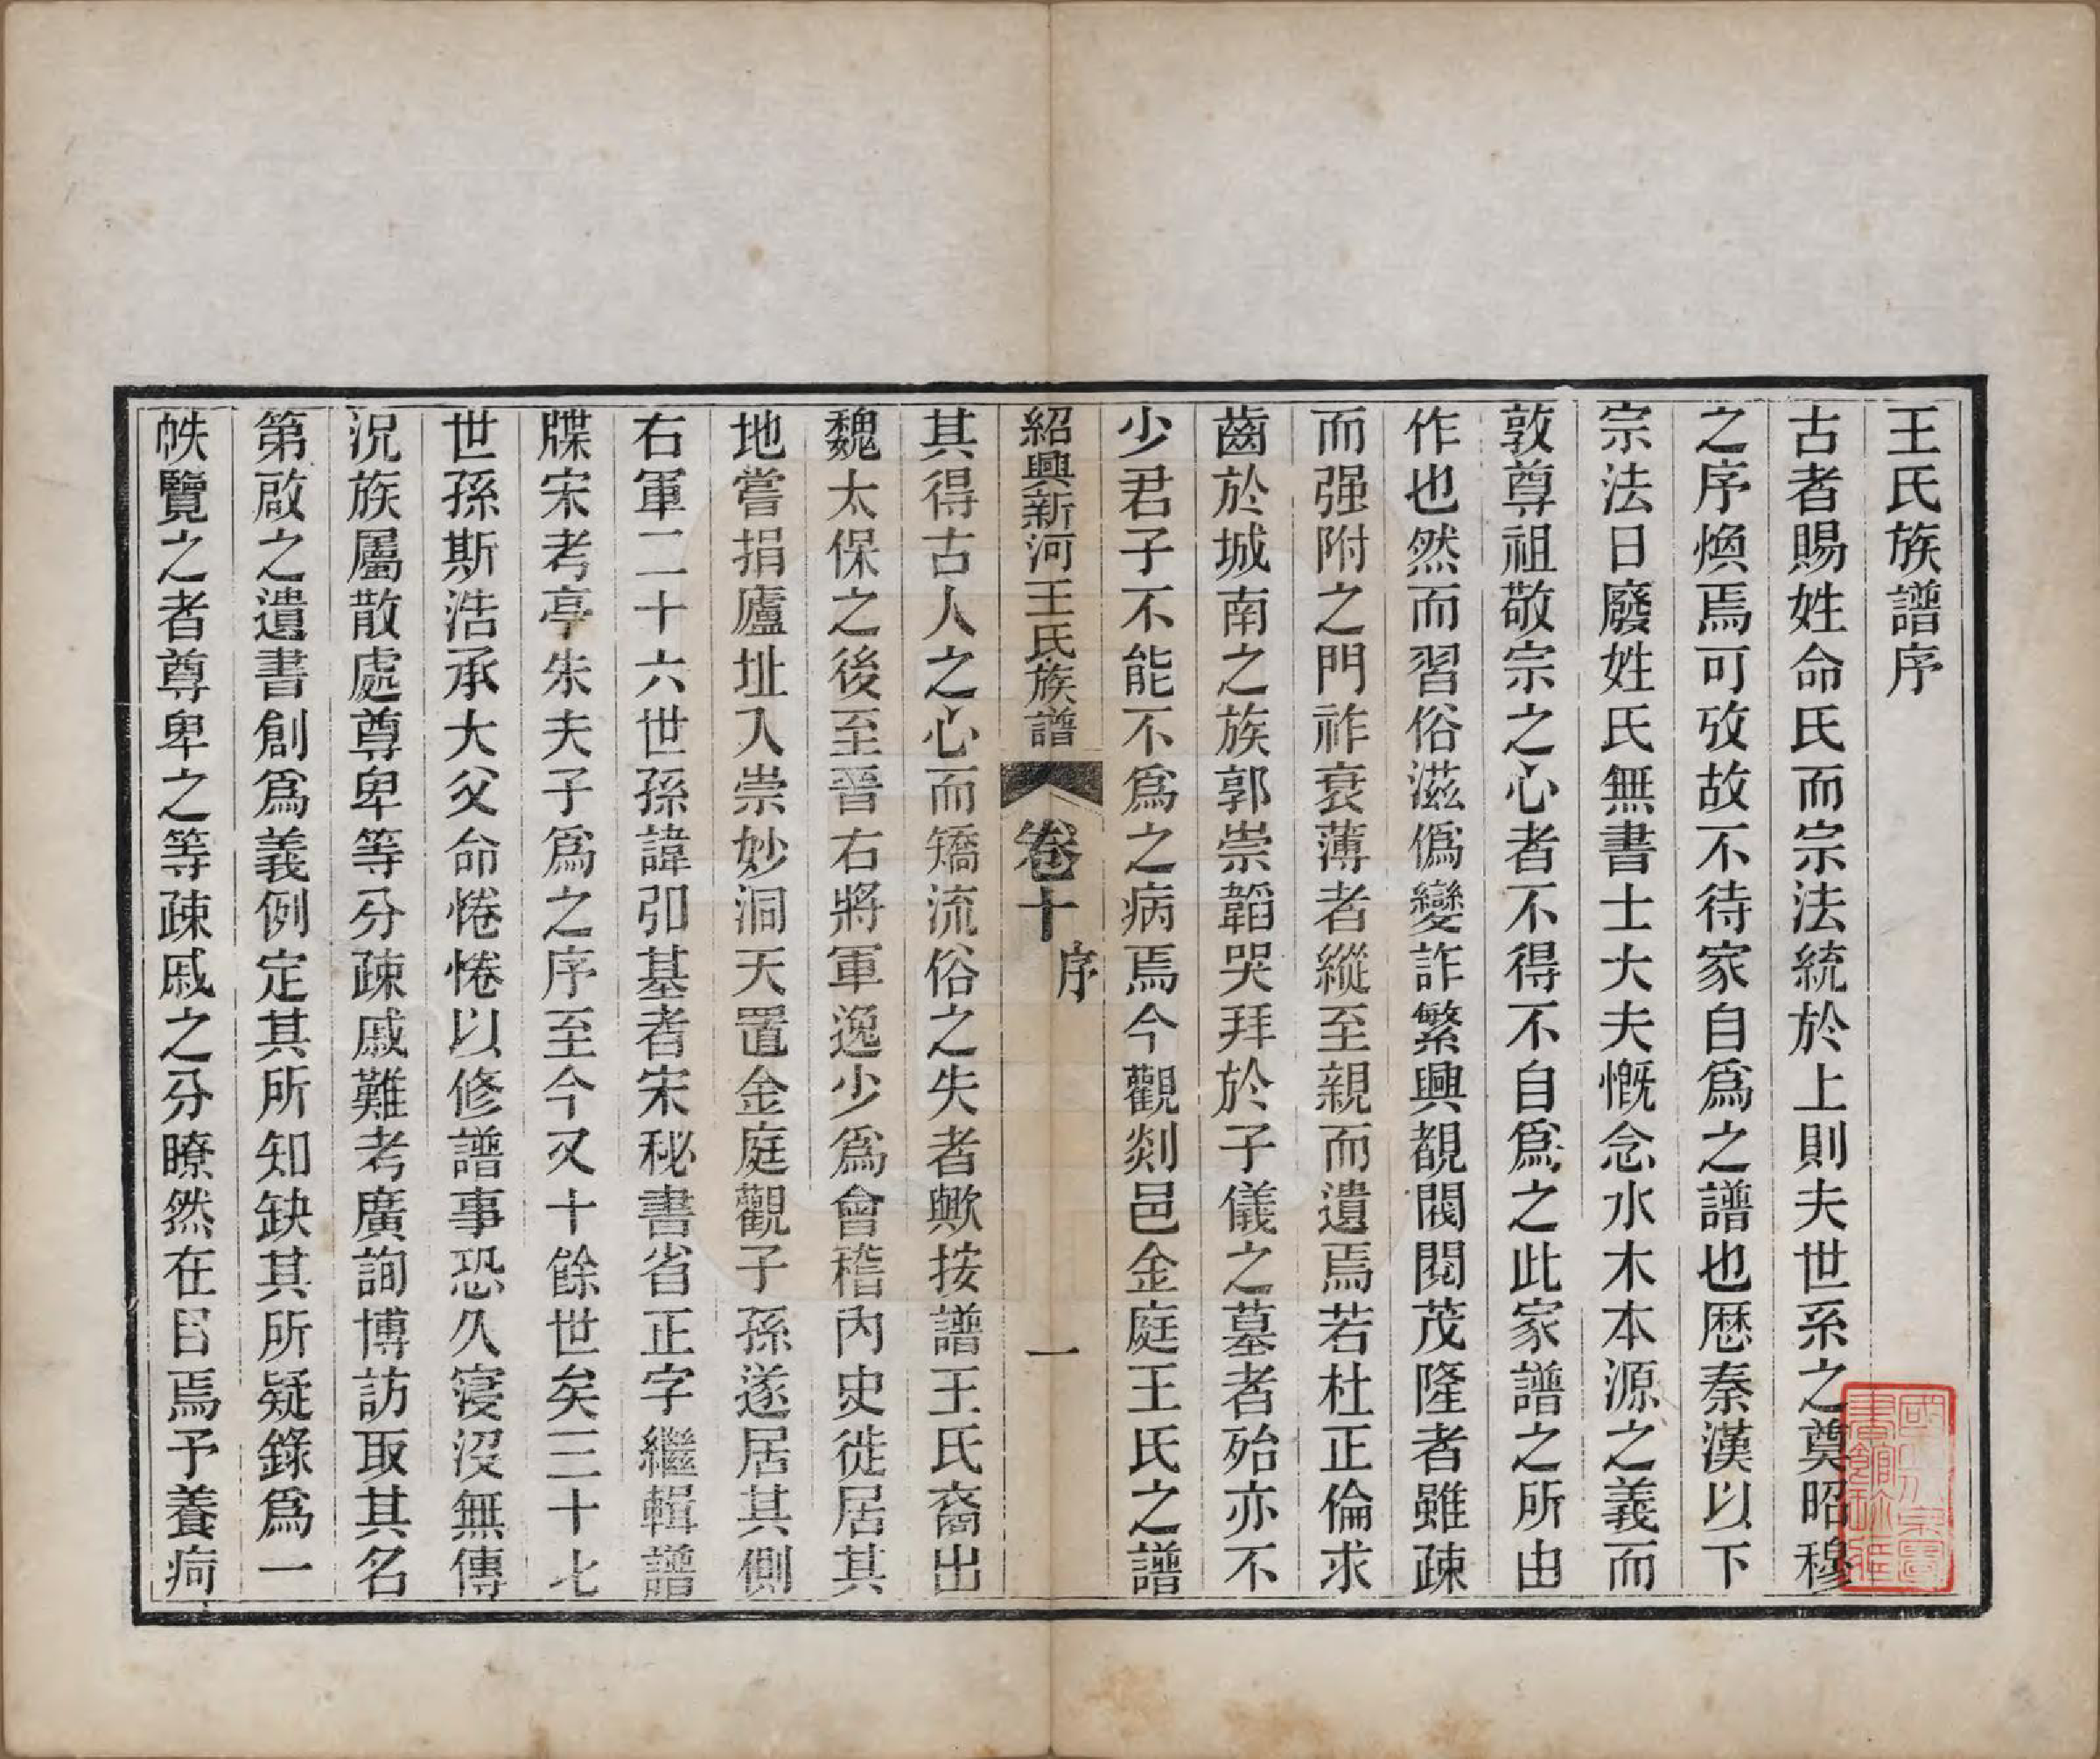 王氏族譜序
古者賜姓命氏而宗法統於上則夫世系之奠昭穆
之序煥焉可攷故不待家自爲之譜也歷秦漢以下
宗法日廢姓氏無書士大夫慨念水木本源之義而
敦尊祖敬宗之心者不得不自爲之此家譜之所由
作也然而習俗滋僞變詐繁興覩閥閱茂隆者雖疎
而强附之門祚衰薄者縱至親而遺焉若杜正倫求
齒於城南之族郭崇韜哭拜於子儀之墓者殆亦不
少君子不能不爲之病焉今觀剡邑金庭王氏之譜
紹興新河王氏族譜 卷十 序 一
其得古人之心而矯流俗之失者歟按譜王氏裔出
魏太保之後至晉右將軍逸少爲會稽內史徙居其
地嘗捐廬址入崇妙洞天置金庭觀子孫遂居其側
右軍二十六世孫諱弘基者宋秘書省正字繼輯譜
牒宋考亭朱夫子爲之序至今又十餘世矣三十七
世孫斯浩承大父命惓惓以修譜事恐久寖沒無傳
況族屬散處尊卑等分疎戚難考廣詢博訪取其名
第啟之遺書創爲義例定其所知缺其所疑錄爲一
帙覽之者尊卑之等疎戚之分瞭然在目焉予養疴